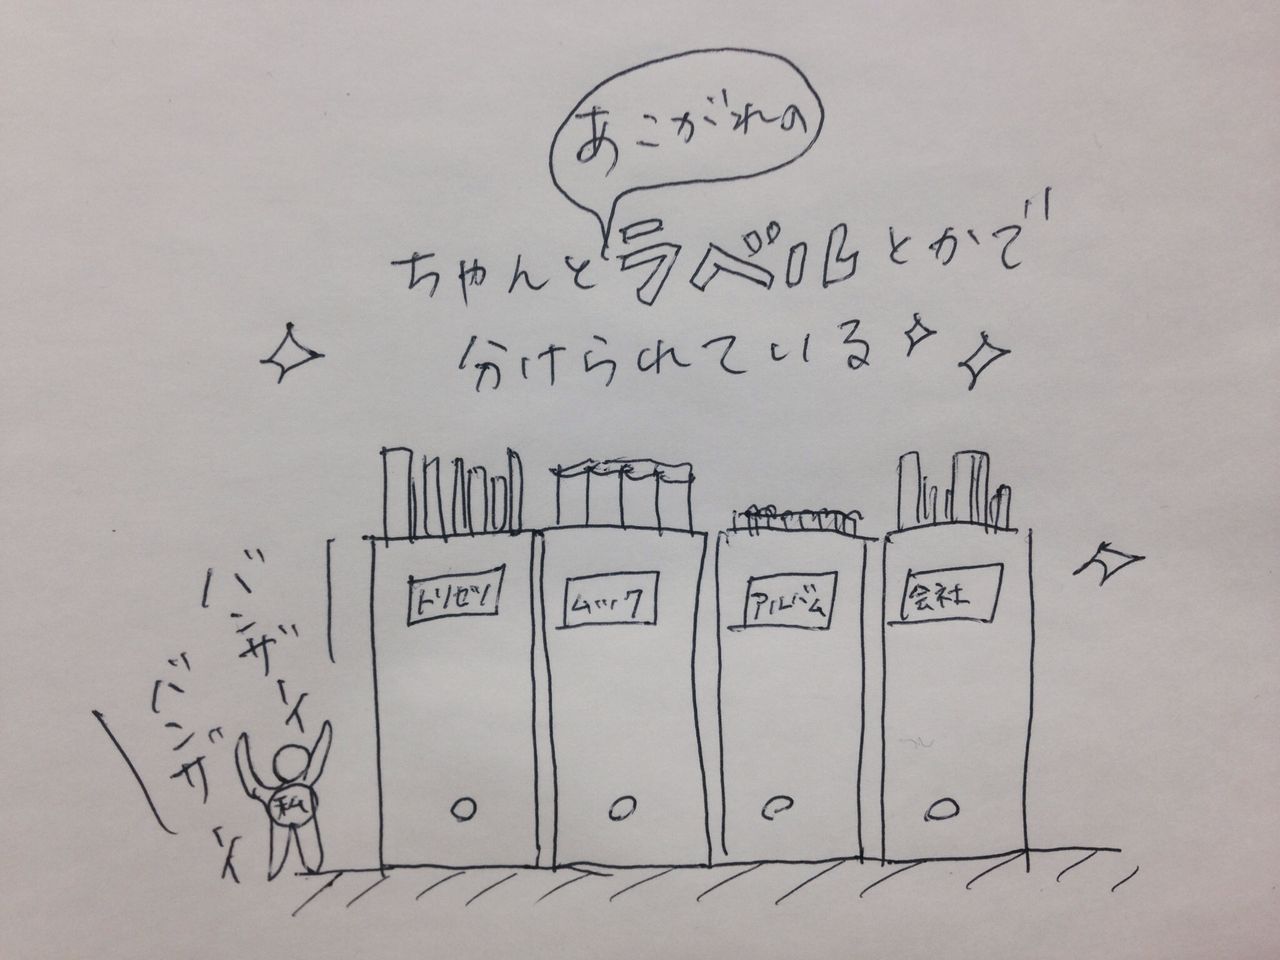 あこがれの
ちゃんとラベルとかで
分けられている
トリセツ
ムック
アルバム
会社
バンザイ
バンザイ
私